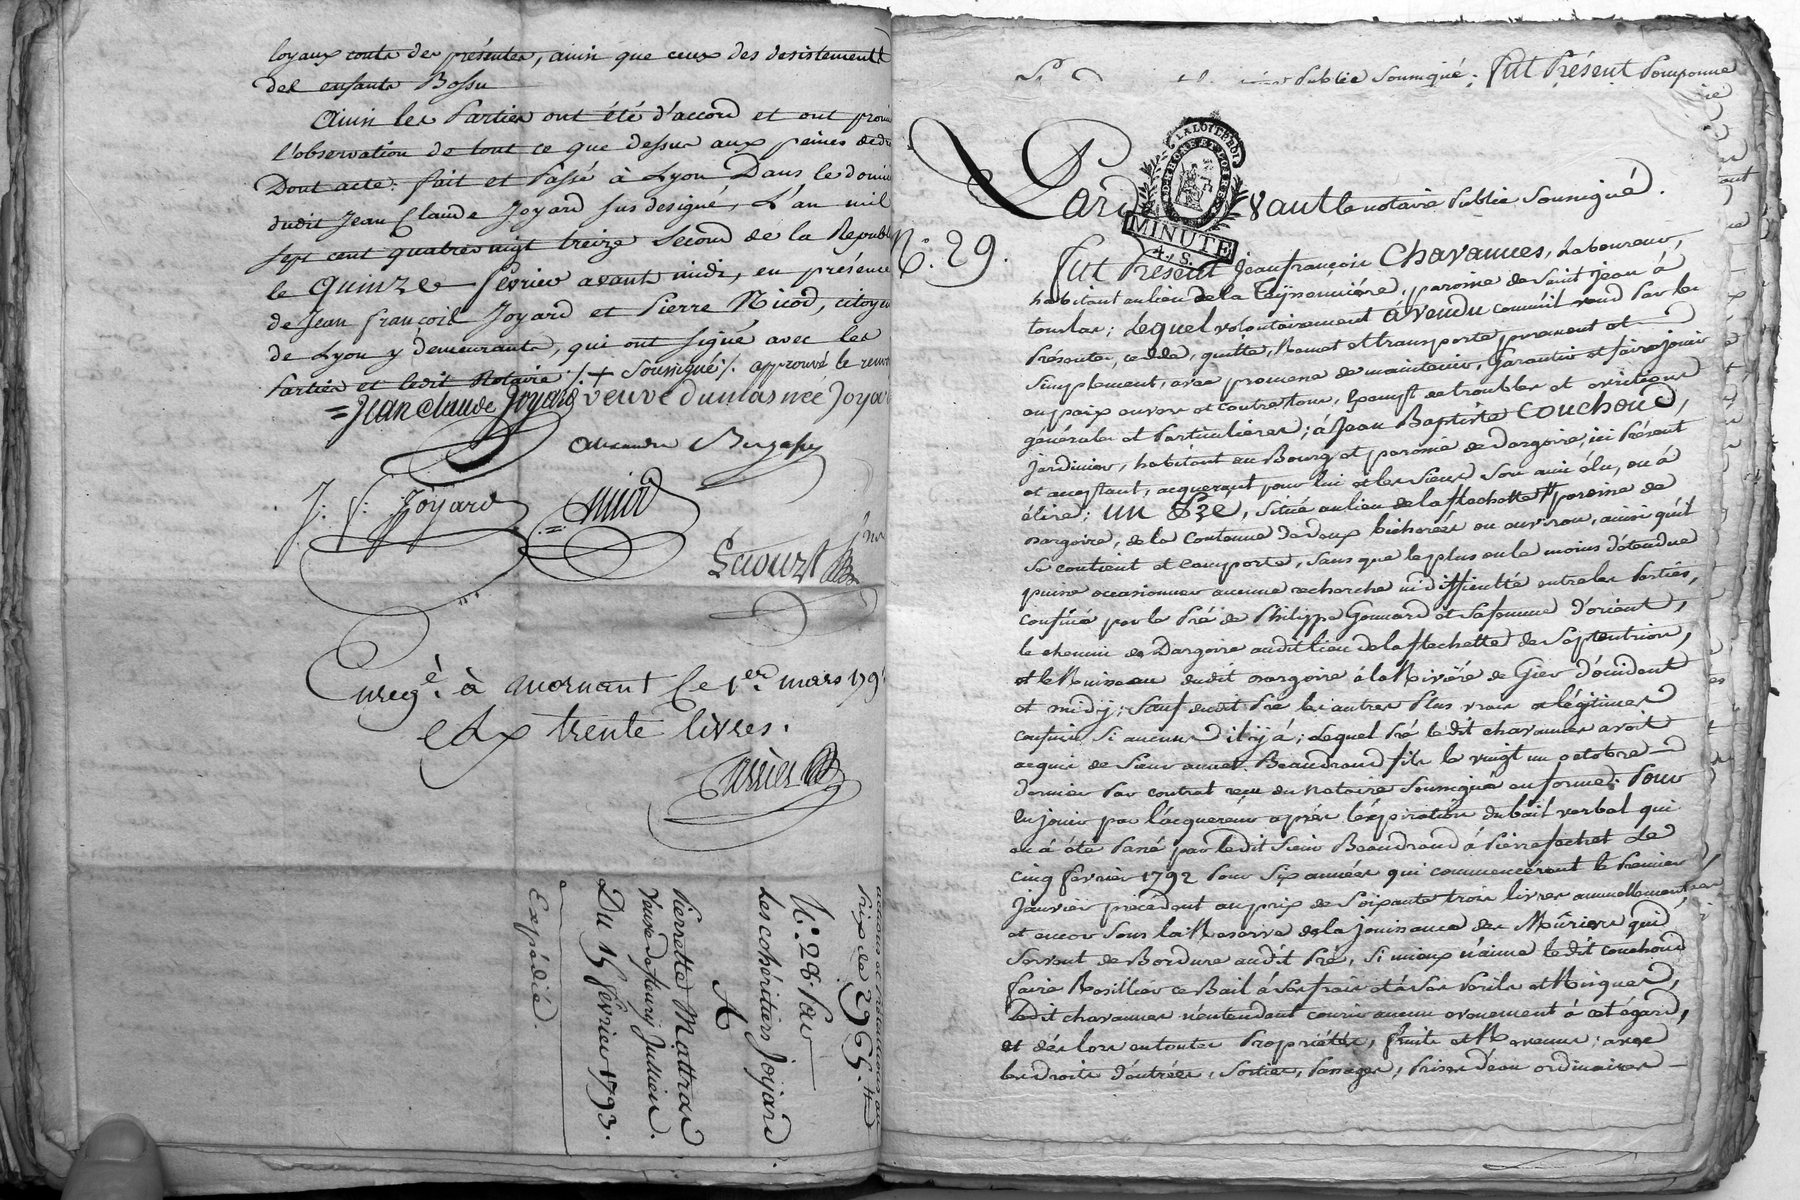 loyaux couts des présentes, ainsi que ceux des desistements
des enfants Bossu
Ainsi les Parties ont été d'accord et ont promis
l'observation de tout ce que dessus aux peines de
Dont acte. fait et Passé à Lyon Dans le domici
dudit Jean Claude Joyard sus designé, L'an mil
sept cent quatrevingt treize second de la Republ
le quinze fevrier avant midi, en présence
de Jean françois Joyard et Pierre Nicod, citoyen
de Lyon y demeurants, qui ont signé avec les
Parties et ledit Notaire /. + soussigné /. approuvé le renvoi
= Jean Claude Joyard veuve dumas née Joyar
Alexandre
J: f: Joyard nicod
Enregé. à mornant le 1er. mars 179
trente livres.
actions et prétentions au
Prix de 2965.tt
N.° 28. Par
Les cohéritiers Joyard
A
Pierrette Mattras
Veuve de fleury Jullien.
Du 15 fevrier 1793.
Expédié.
Public Soussigné. fut Présent Pomponne
LA LOI LE ROI
D. RHONE ET LOIRE
MINUTE
4. S.
Pardevant le notaire Public Soussigné.
N.° 29.
fut Présent Jean françois Chavannes, laboureur,
habitant au lieu de la Teyssonnière, paroisse de Saint Jean à
touslas; Lequel volontairement à vendu comme il vend Par les
Présentes, cède, quitte, Remet et transporte purement et
simplement, avec promesse de maintenir, Garantir et faire jouir
en paix envers et contre tous, Exempt de troubles et evictions
générales et Particulières; à Jean Baptiste Couchoud,
jardinier, habitant au Bourg et paroisse de Dargoire, ici Présent
et acceptant, acquerant pour lui et les Siens Son ami élu, ou à
élire; un Pré, situé au lieu de la flechette paroisse de
Dargoire, de la Contenue de deux bicherées ou environ, ainsi qu'il
se contient et comporte, sans que le plus ou le moins d'étendue
puisse occasionner aucune recherche ni difficulté entre les Parties,
confiné par le Pré de Philippe Gonnard et Sa femme d'orient,
le chemin de Dargoire audit lieu de la flechette de Septentrion,
et le Ruisseau dudit Dargoire à la Rivière de Gier d'occident
et midy; Sauf dudit Pré les autres Plus vrais et légitimes
confins si aucuns il y à; Lequel Pré ledit chavannes avoit
acquis de Sieur Beaudrand fils le vingt un octobre
dernier Par contrat reçu du notaire Soussigné en forme. Pour
en jouir par l'acquereur après l'expiration du bail verbal qui
en à été Passé par ledit Sieur Beaudrand à Pierre fechet Le
cinq fevrier 1792 Pour Six années qui commencèrent le Premier
Janvier précédent au prix de Soixante trois livres annuellement,
et encor Sous la Réserve de la jouissance des Mûriers qui
servent de Bordure audit Pré, Si mieux n'aime ledit couchoud
faire Résillier ce Bail à Ses frais et à Ses Périls et Risques,
Ledit chavannes n'entendant courir aucun evenement à cet égard,
et dès lors en toutes Propriétés, fruits et Revenus; avec
les droits d'entrées, Sorties, Passages, Prises d'eau ordinaires